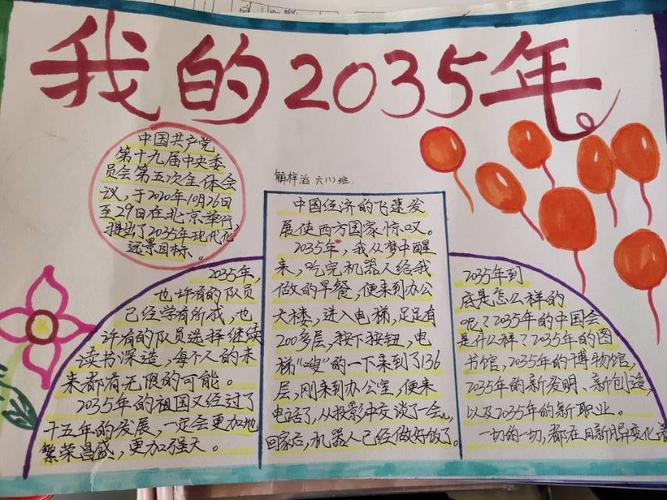 我的2035年
中国共产党
第十九届中央委
员会第五次全体会
议，于2020年10月26日
至29日在北京举行
提出了2035年现代化
远景目标。
六（1）班
2035年，
也许有的队员
已经学有所成，也
许有的队员选择继续
读书深造，每个人的未
来都有无限的可能。
2035年的祖国又经过了
十五年的发展，一定会更加地
繁荣昌盛，更加强大。
中国经济的飞速发
展使西方国家惊叹。
2035年，我从梦中醒
来，吃完机器人给我
做的早餐，便来到办公
大楼，进入电梯，足足有
200多层，按下按钮，电
梯“嗖”的一下来到了136
层，刚来到办公室，便来
电话了，从投影中交谈了一会儿
回家后，机器人已经做好饭了。
2035年到
底是怎么样的
呢？2035年的中国会
是什么样？2035年的图
书馆，2035年的博物馆，
2035年的新发明、新创造，
以及2035年的新职业。
一切的一切，都在日新月异变化着